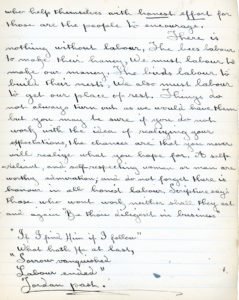 who help themselves with honest effort for
those are the people to encourage.
There is
nothing without labour, The bees labour
to make their honey, We must labour to
make our money, The birds labour to
build their nests, We also must labour
to get our place of rest. Things do
not always turn out as we would have them
but you may be sure if you do not
work with the idea of realizing your
expectations, the chances are that you never
will realize what you hope for. A self
reliant, and self-respecting woman or man are
worthy admiration, and do not forget there is
honour in all honest labour. Scripture says
those who wont work neither shall they eat
and again Be thou diligent in business
"If I find Him if I follow"
What hath He at last,
"Sorrow vanquished
Labour ended"
Jordan past.